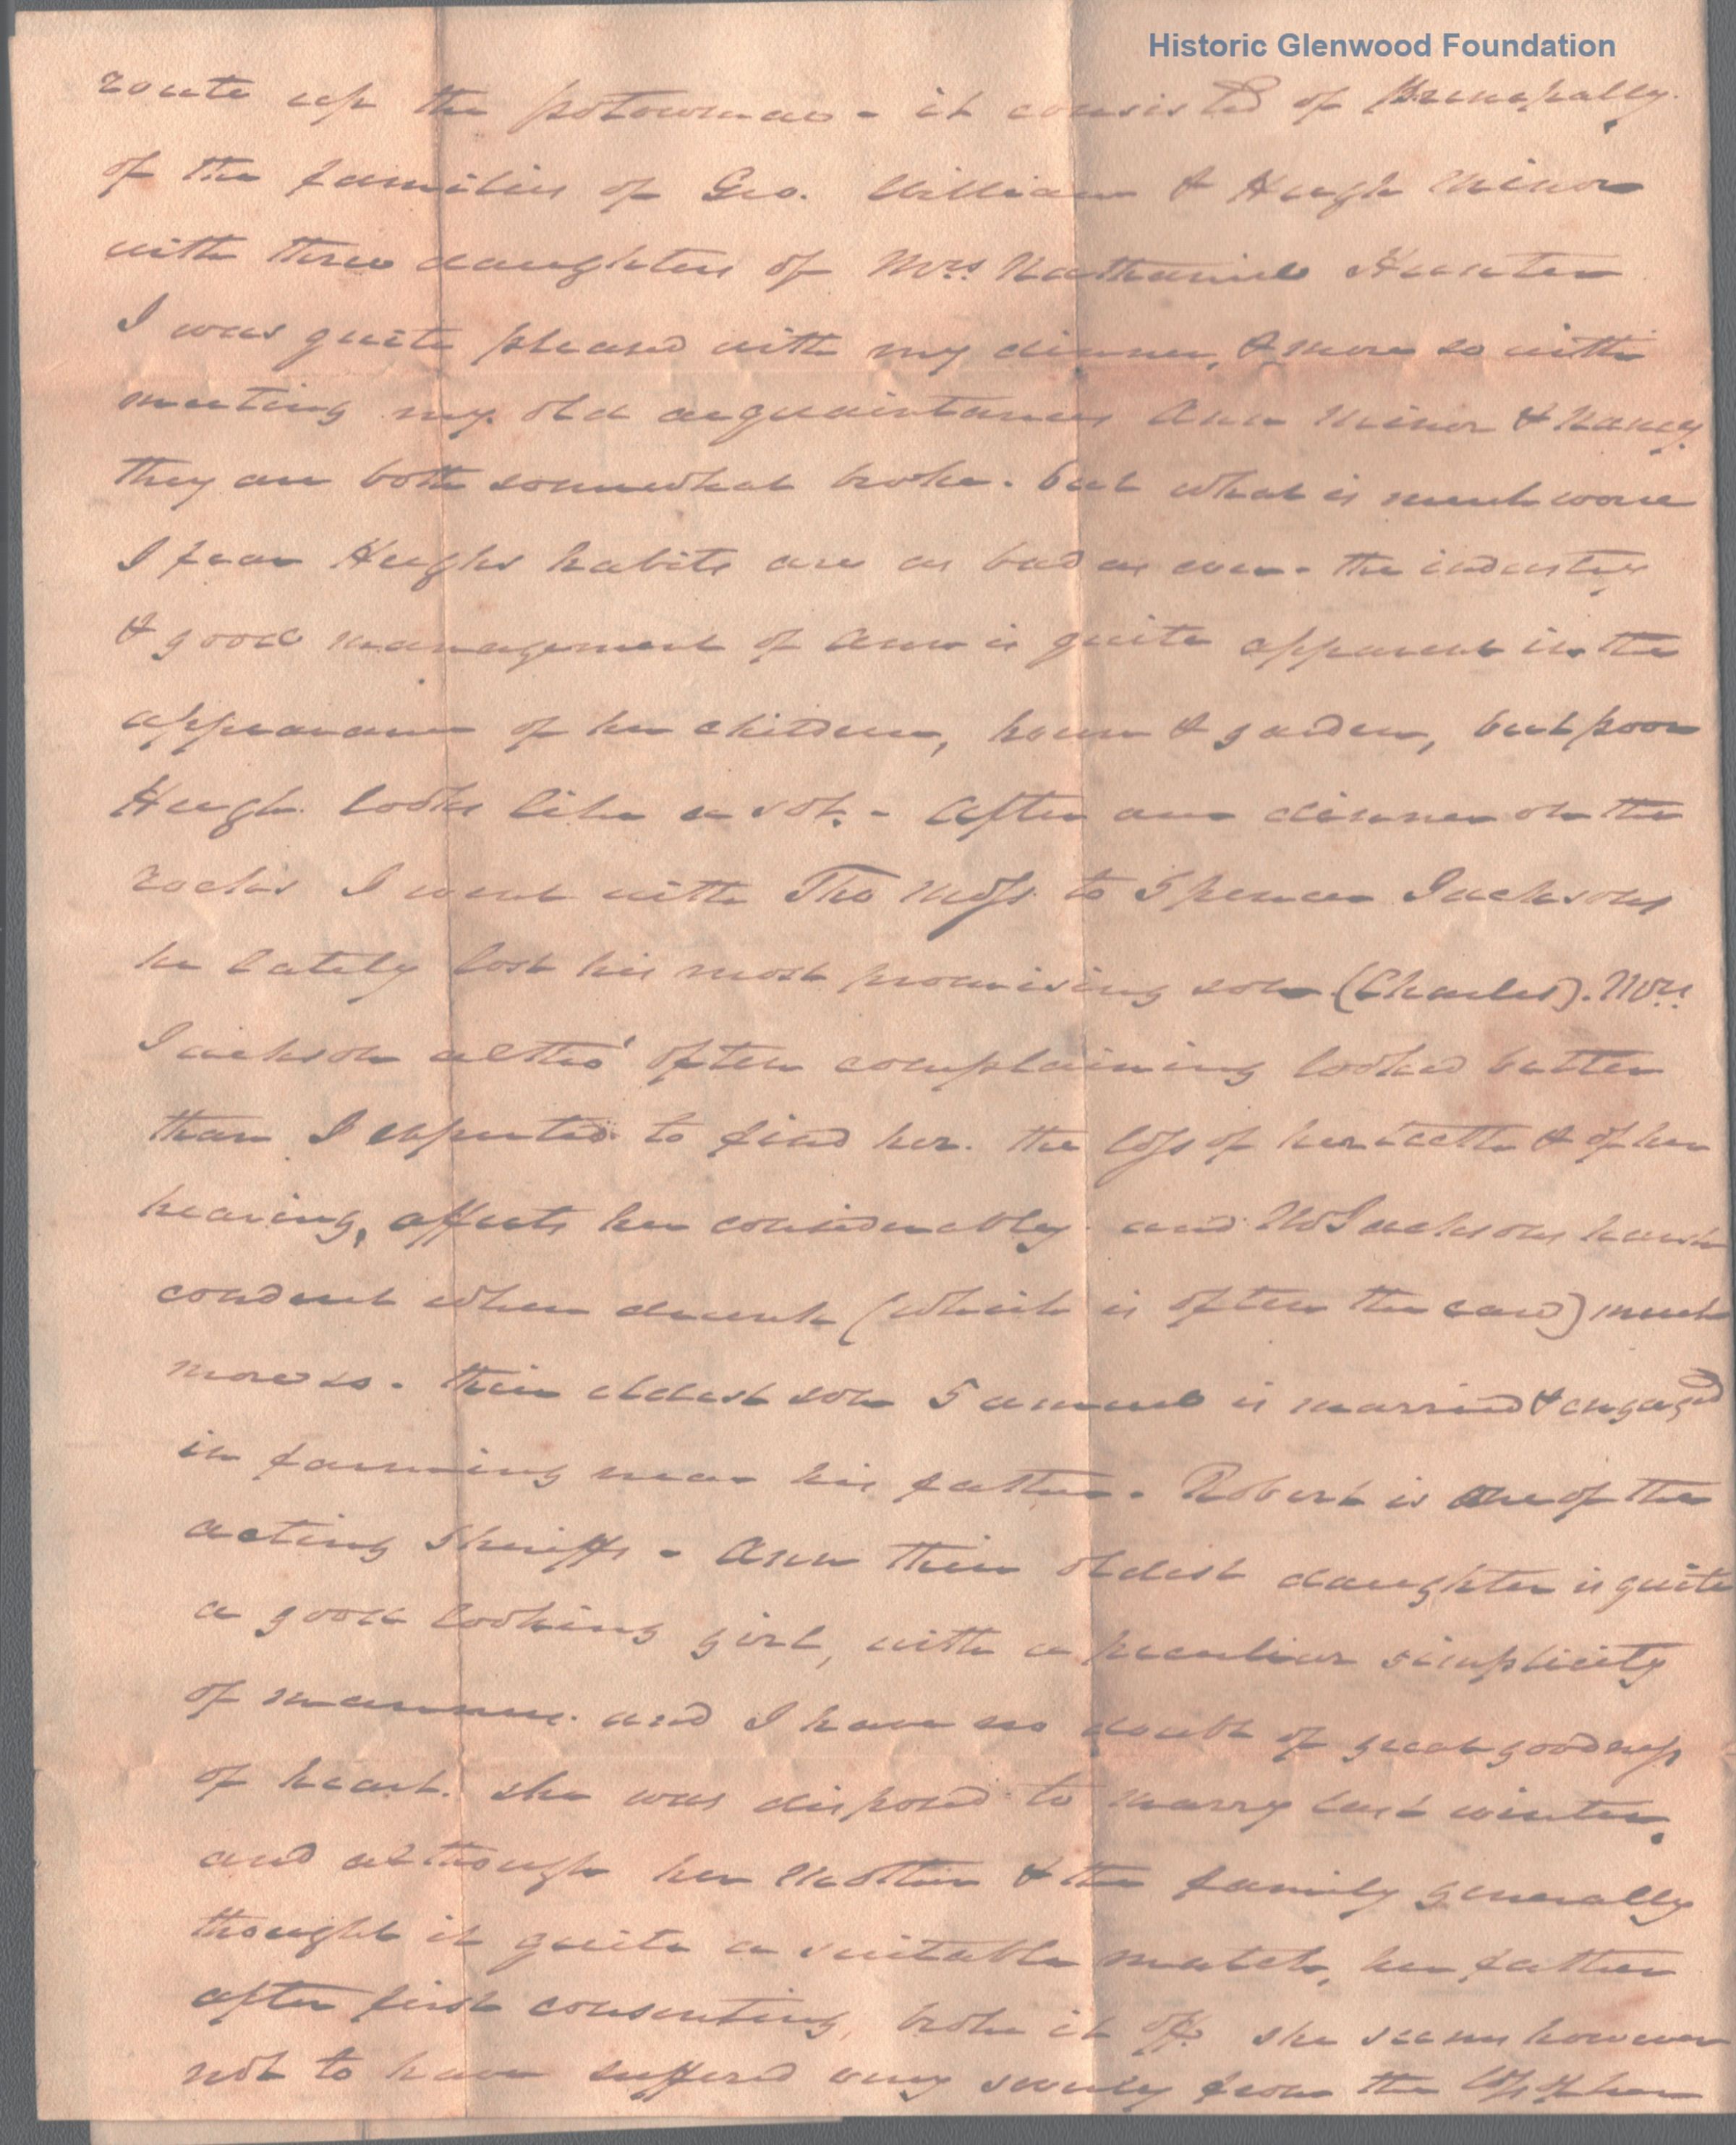 Historic Glenwood Foundation
route up the potowmac - it consisted of Principally
of the families of Geo. William & Hugh Minor
with three daughters of Mrs Nathaniel Hunter
I was quite pleased with my dinner, & more so with
meeting my old acquaintances Ann Minor & Nancy.
they are both somewhat broke. but what is much worse
I fear Hughs habits are as bad as ever - the industry
& good management of Ann is quite apparent in the
appearance of her children, house & garden, but poor
Hugh looks like a sot. - After our dinner on the
rocks I went with Tho Moss to Spencer Jacksons
he lately lost his most promising son (Charles). Mrs
Jackson altho' often complaining looked better
than I expected to find her. the loss of her teeth & of her
hearing, affects her considerably and Mr Jacksons harsh
conduct when drunk (which is often the case) much
more so. their eldest son Samuel is married & engaged
in farming near his father. Robert is one of the
acting Sheriffs - Ann their oldest daughter is quite
a good looking girl, with a peculiar simplicity
of manner. and I have no doubt of great goodness
of heart. she was disposed to marry last winter,
and although her Mother & the family generally
thought it quite a suitable match, her father
after first consenting, broke it off. she seems however
not to have suffered very severely from the loss of her